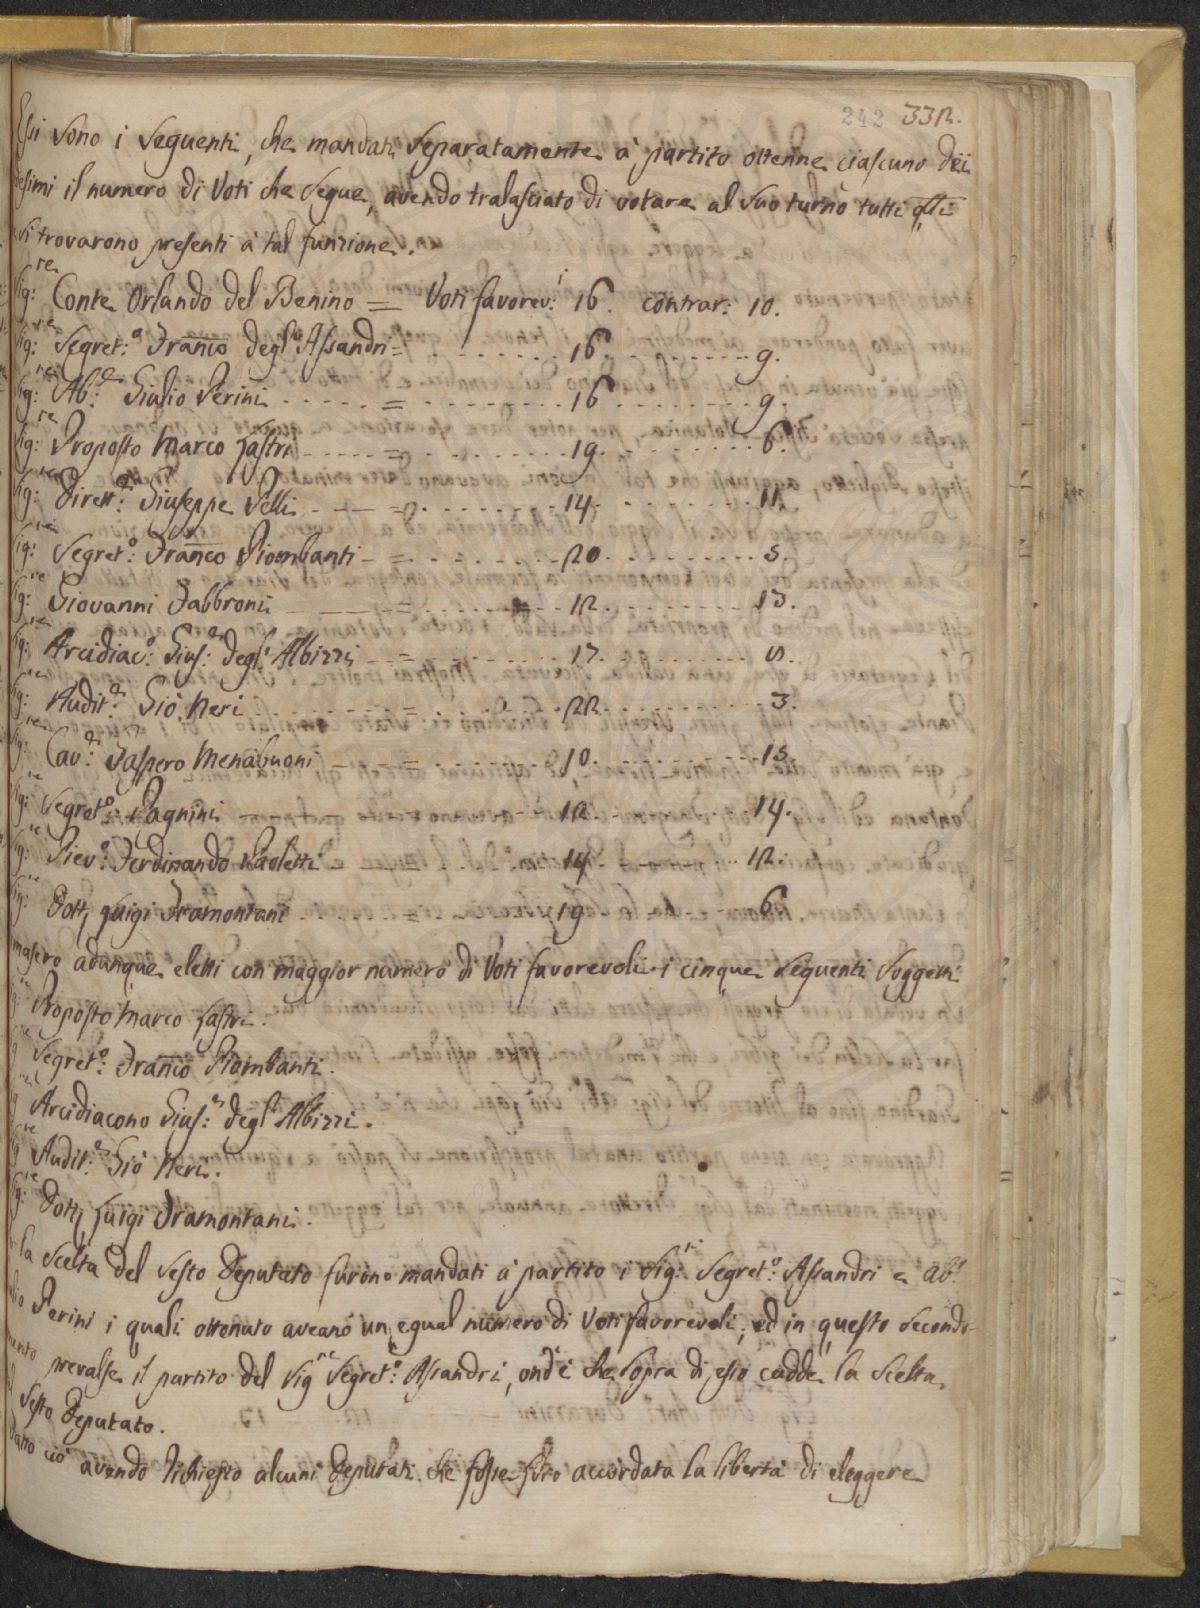 242 332.
Essi sono i seguenti, che mandati separatamente à partito ottenne ciascuno dei
desimi il numero di Voti che segue, avendo tralasciato di votare al suo turno tutti qlli
si trovarono presenti à tal funzione.
Sig:re Conte Orlando del Benino = Voti favorev:i 16. contrar: 10.
Sig:re Segret:o Franco degl' Assandri = 16. 9.
Sig:re Ab:e Giulio Perini = 16 9.
Sig:re Proposto Marco Lastri = 19. 6.
Sig:re Dirett:e Giuseppe Pelli = 14. 11.
Sig:re Segret:o Franco Piombanti = 20. 5.
Sig:re Giovanni Fabbroni = 12. 13.
Sig:re Arcidiac:o Gius:e degl' Albizzi = 17. 8.
Sig:re Audit:e Gio Neri = 22. 3.
Sig:re Cav:e Gaspero Menabuoni = 10. 15.
Sig:re Segret:o Pagnini 12. 14.
Sig:re Piev:o Ferdinando Paoletti 14 12.
Sig:re Dott Luigi Tramontani = 19 6
masero adunque eletti con maggior numero di Voti favorevoli i cinque seguenti Soggetti
Sig:re Proposto Marco Lastri.
Sig:re Segret:o Franco Piombanti.
Sig:re Arcidiacono Gius:e degl' Albizzi.
Sig:re Audit:e Gio Neri.
Sig:re Dott Luigi Tramontani.
la scelta del sesto Deputato furono mandati à partito i Sig:ri Segret:o Assandri e Ab:e
Perini i quali ottenuto aveano un egual numero di Voti favorevoli, ed in questo secondo
prevalse il partito del Sig:re Segret:o Assandri, ond'è che sopra di esso cadde la scelta
sesto Deputato.
ciò avendo richiesto alcuni Deputati che fosse loro accordata la libertà di eleggere